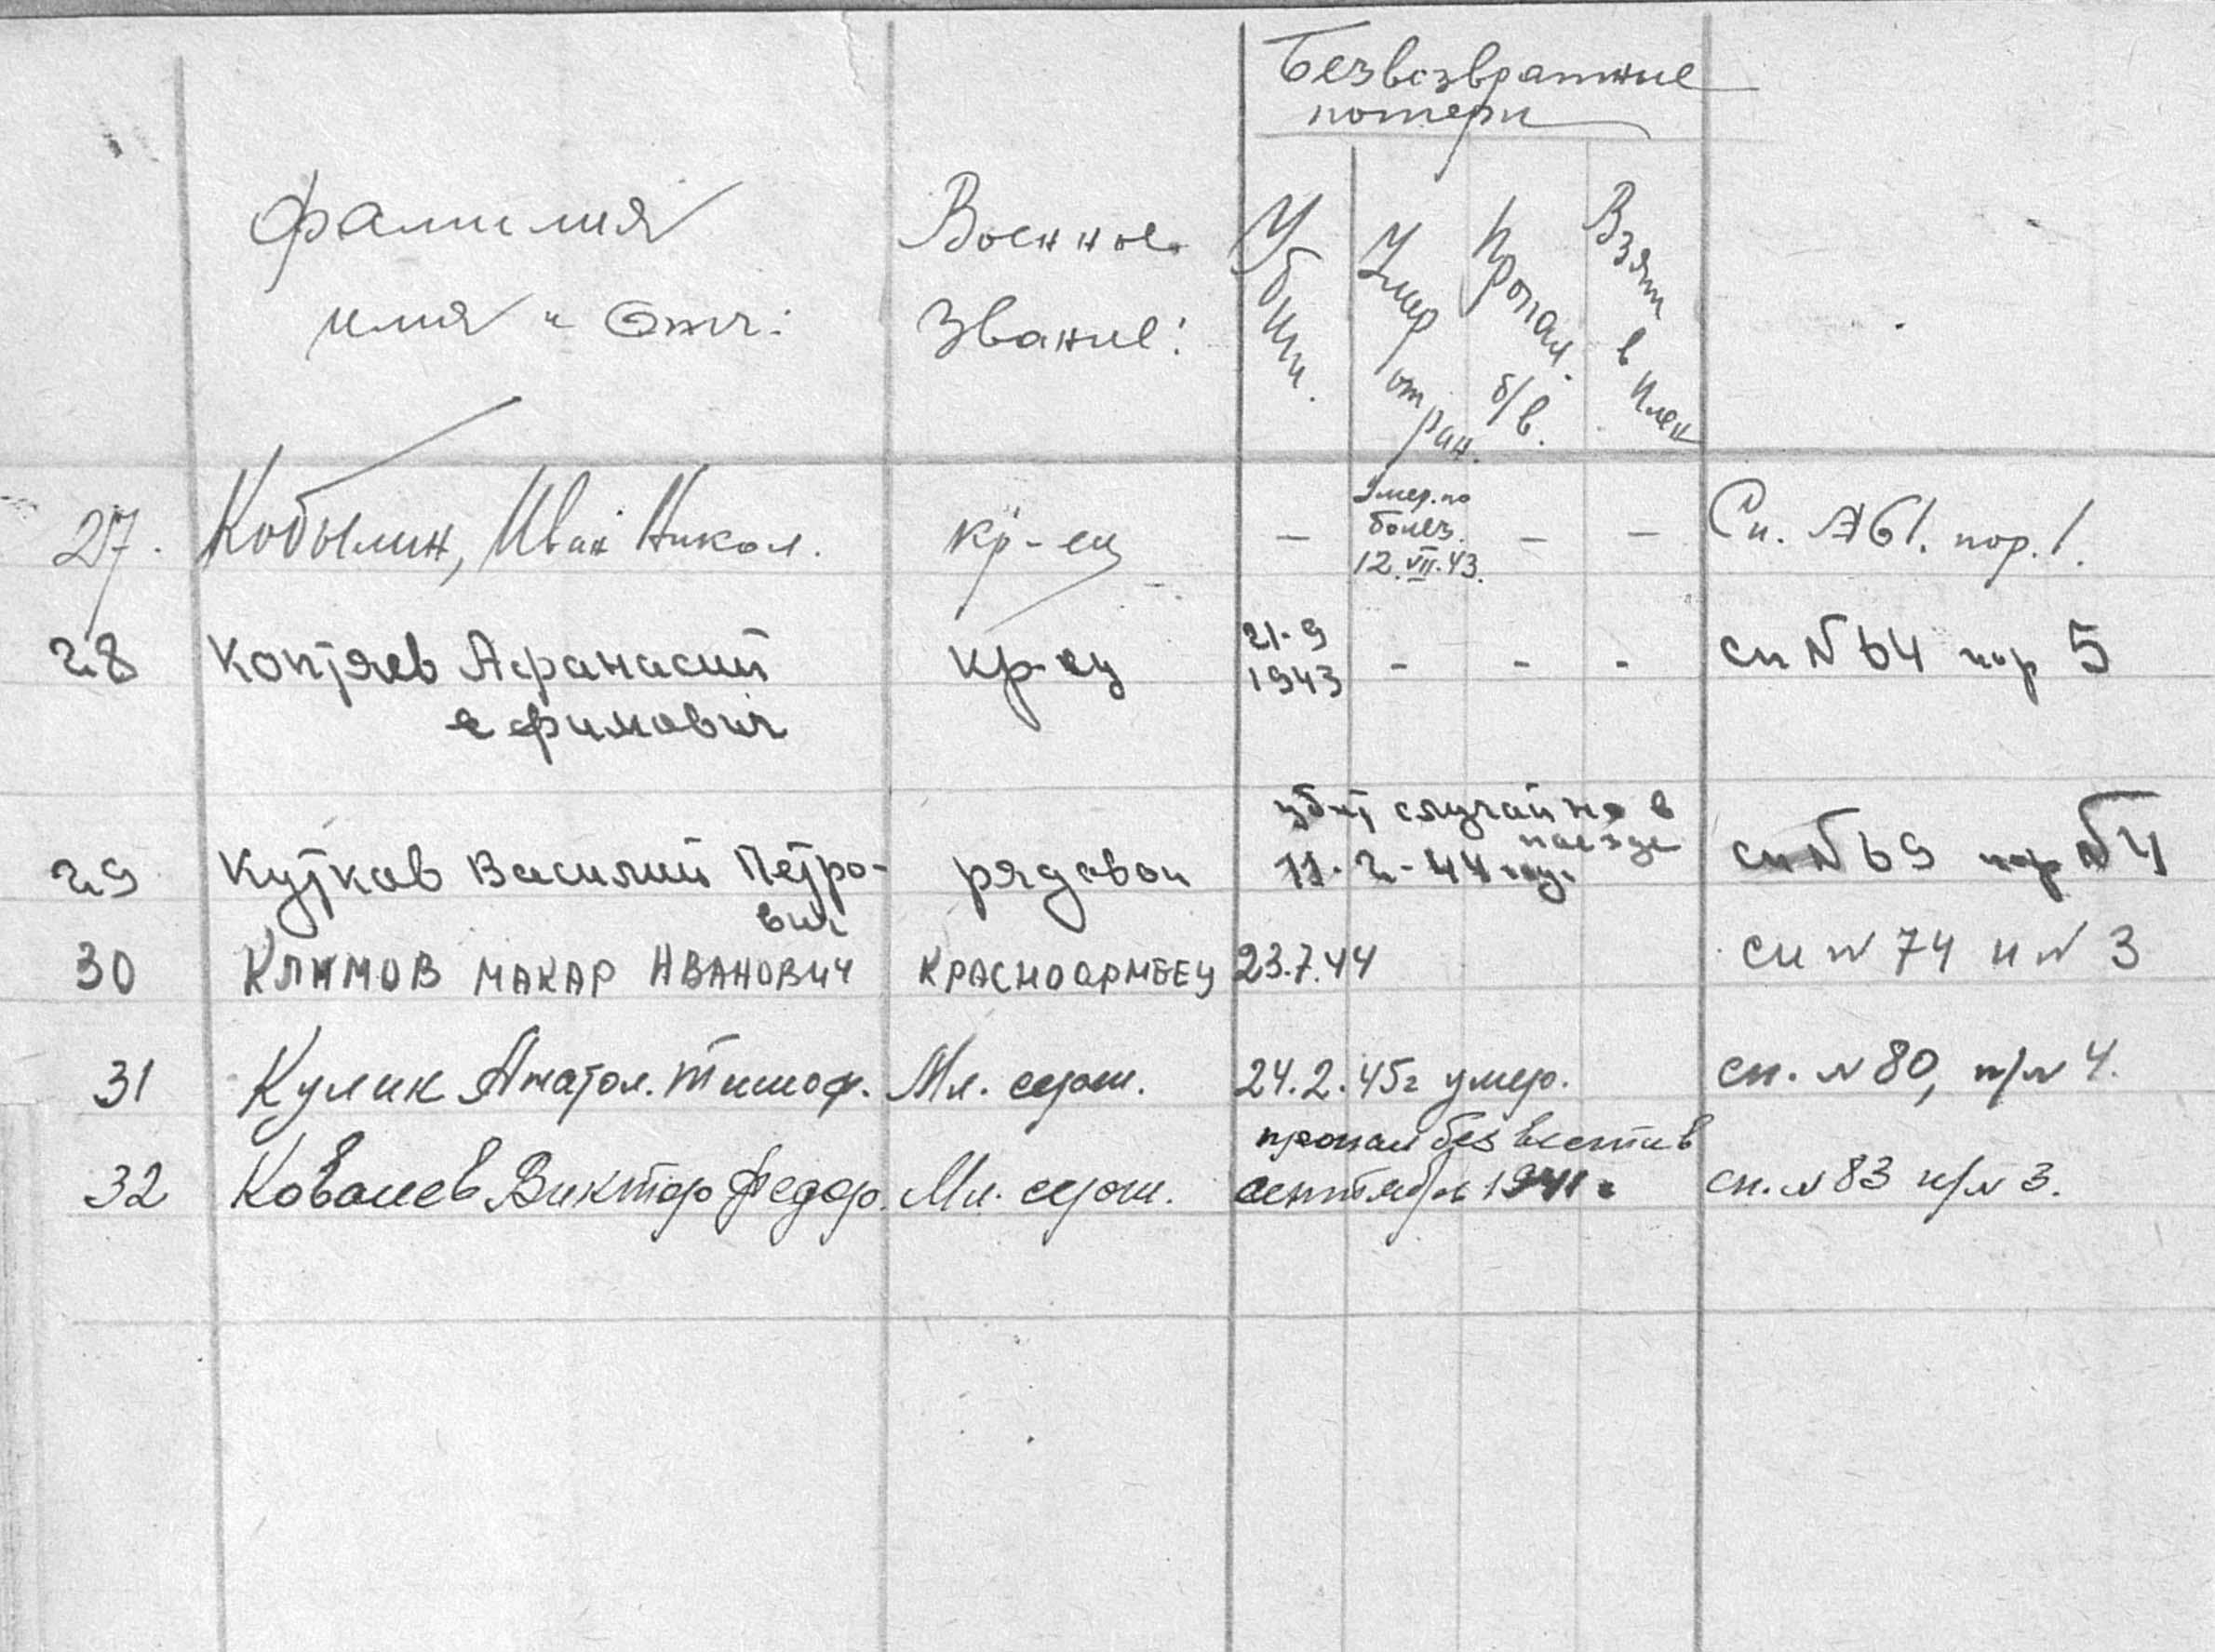 Безвозвратные
потери
Фамилия
имя и отч:
Военное
звание:
Убит.
Умер от ран.
Пропал. б/в.
Взят в плен
27. Кобылин, Иван Никол. кр-ец - Умер. по болез. 12.VII.43. - - Сп. №61. пор. 1.
28 Коптяев Афанасий кр-ец 21-9 1943 - - - сп №64 пор 5
ефимович
убит случайно в
поезде
29 Кутков Василий Петро- рядовой 11-2-44 год. сп №69 пор №4
вич
30 Климов Макар Иванович Красноармеец 23.7.44 сп № 74 п № 3
31 Кулик Анатол. Тимоф. Мл. серж. 24.2.45г умер. сп. № 80, п/№ 4.
пропал без вести в
32 Ковалев Виктор Федор. Мл. серж. сентябре 1941г сп. № 83 п/№ 3.